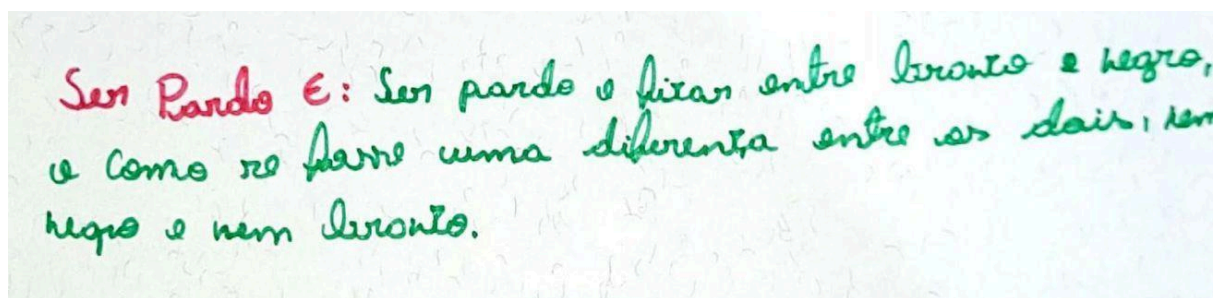 Ser Pardo É: Ser pardo e ficar entre branco e negro,
e como se fosse uma diferença entre os dois, nem
negro e nem branco.